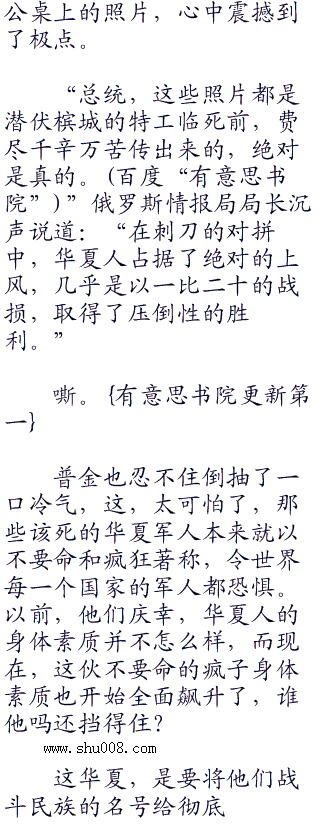 公桌上的照片，心中震撼到
了极点。
“总统，这些照片都是
潜伏槟城的特工临死前，费
尽千辛万苦传出来的，绝对
是真的。(百度“有意思书
院”)”俄罗斯情报局局长沉
声说道：“在刺刀的对拼
中，华夏人占据了绝对的上
风，几乎是以一比二十的战
损，取得了压倒性的胜
利。”
嘶。{有意思书院更新第
一}
普金也忍不住倒抽了一
口冷气，这，太可怕了，那
些该死的华夏军人本来就以
不要命和疯狂著称，令世界
每一个国家的军人都恐惧。
以前，他们庆幸，华夏人的
身体素质并不怎么样，而现
在，这伙不要命的疯子身体
素质也开始全面飙升了，谁
他吗还挡得住？
www.shu008.com
这华夏，是要将他们战
斗民族的名号给彻底